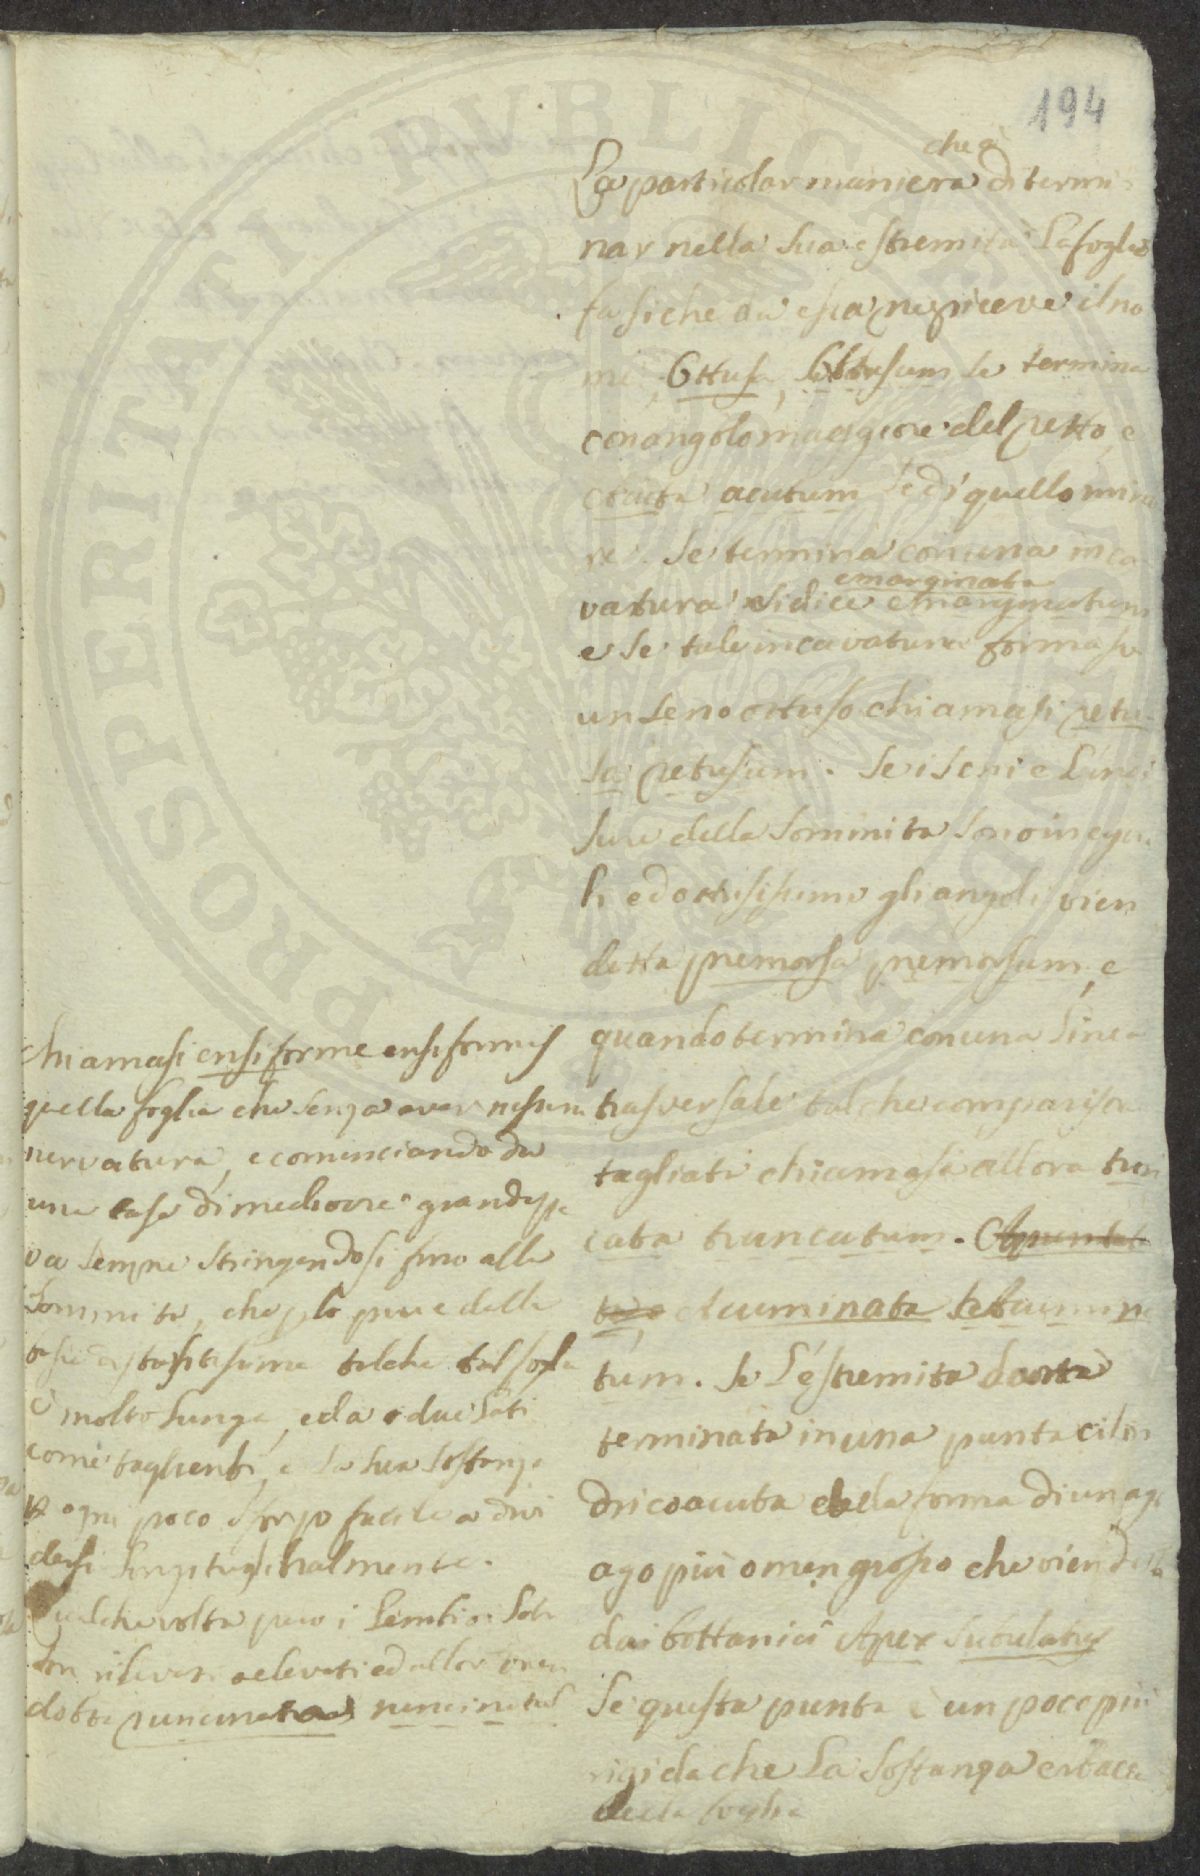 194
che a
La particolar maniera di termi-
nar nella sua estremità la foglia
fa si che da essa ne riceve il no
me, Ottusa, Obtusum se termina
con angolo maggiore del retto, e
acuta acutum se di quello mino
re. Se termina con una inca
emarginata
vatura si dice emarginatum
e se tale incavatura forma
un seno ottuso chiamasi retu-
sa retusum. Se i seni e l'inci
sure della sommità sono inegua
li ed ottusissimi gli angoli vien
detta premorsa premorsum, e
quando termina con una linea
trasversale talche comparisca
tagliata chiamasi allora trun
cata truncatum. Apuntata
Acuminata acumina
tum. Se l'estremità
terminata in una punta cilin
drico acuta della forma di un ago
ago più o men grosso che vien detta
dai bottanici Apex subulatus
Se questa punta è un poco più
rigida che la sostanza erbacea
della foglia
chiamasi ensiforme ensiformis
quella foglia che senza aver nessuna
nervatura, e cominciando da
una base di mediocre grandezza
va sempre stringendosi fino alla
sommità, che
talche tal foglia
è molto lunga, ed a due lati
come taglienti, e la sua sostanza
ogni poco sforzo facile a divi
dersi longitudinalmente.
Qualche volta però i lembi
rilevati ed allor vien
detta runcinata runcinatus
PROSPERITATI PVBLICAE AVGENDAE